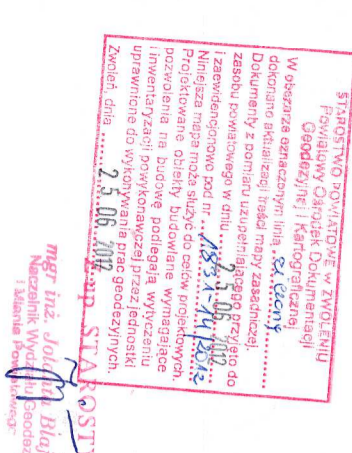 STAROSTWO POWIATOWE w ZWOLENIU
Powiatowy Ośrodek Dokumentacji
Geodezyjnej i Kartograficznej
W obszarze oznaczonym linią ..zieloną......
dokonano aktualizacji treści mapy zasadniczej.
Dokumenty z pomiaru uzupełniającego przyjęto do
zasobu powiatowego w dniu ...25.06.2012
i zaewidencjonowano pod nr ...1831-14/2012
Niniejsza mapa może służyć do celów projektowych.
Projektowane obiekty budowlane wymagające
pozwolenia na budowę podlegają wytyczeniu
i inwentaryzacji powykonawczej przez jednostki
uprawnione do wykonywania prac geodezyjnych.
Zwoleń, dnia ...25.06.2012
STAROSTY
mgr inż.
Naczelnik Wydziału Geodez
i Mienia Powiatowego